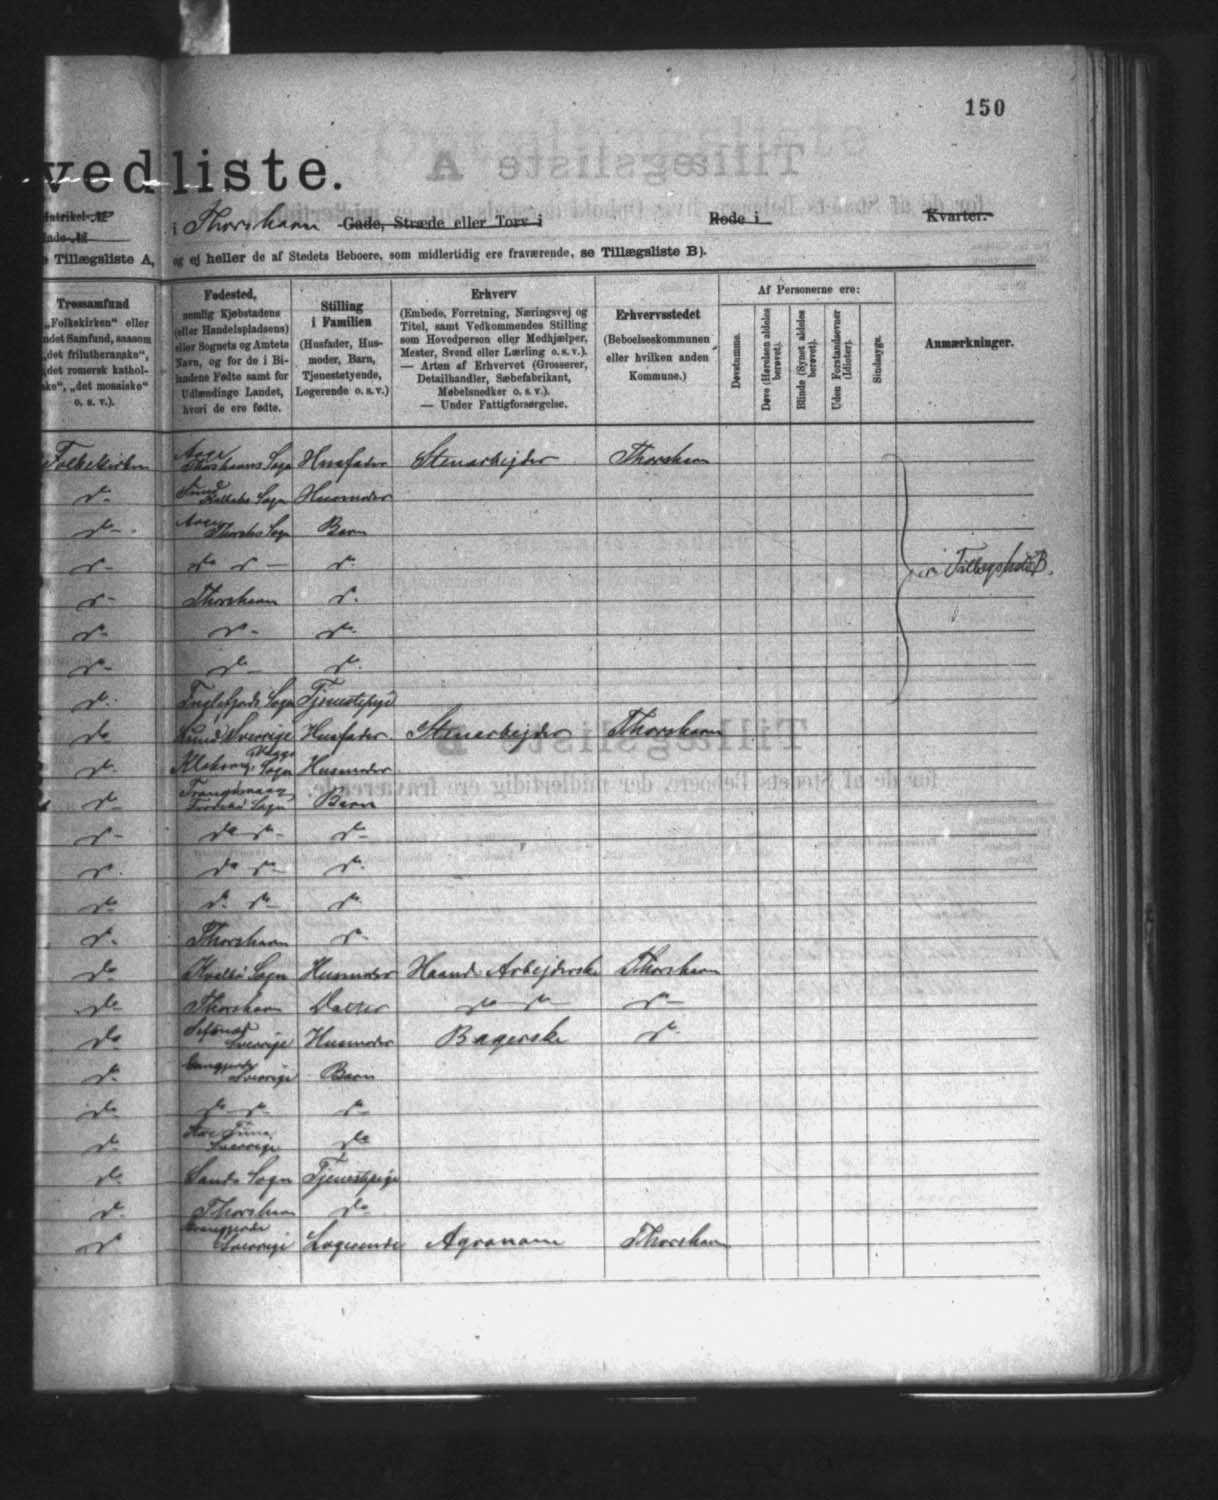 150
vedliste.
Matrikel-№
i Thorshavn Gade, Stræde eller Torv i Rode i Kvarter.
Tillægsliste A, og ej heller de af Stedets Beboere, som midlertidig ere fraværende, se Tillægsliste B).
Trossamfund
„Folkekirken“ eller
ndet Samfund, saasom
„det frilutheranske“,
„det romersk kathol-
ske“, „det mosaiske“
o. s. v.).
Fødested,
nemlig Kjøbstadens
(eller Handelspladsens)
eller Sognets og Amtets
Navn, og for de i Bi-
landene Fødte samt for
Udlændinge Landet,
hvori de ere fødte.
Stilling
i Familien
(Husfader, Hus-
moder, Barn,
Tjenestetyende,
Logerende o. s. v.)
Erhverv
(Embede, Forretning, Næringsvej og
Titel, samt Vedkommendes Stilling
som Hovedperson eller Medhjælper,
Mester, Svend eller Lærling o. s. v.).
— Arten af Erhvervet (Grosserer,
Detailhandler, Sæbefabrikant,
Møbelsnedker o. s. v.).
— Under Fattigforsørgelse.
Erhvervsstedet
(Beboelseskommunen
eller hvilken anden
Kommune.)
Af Personerne ere:
Døvstumme.
Døve (Hørelsen aldeles
berøvet).
Blinde (Synet aldeles
berøvet).
Uden Forstandsevner
(Idioter).
Sindssyge.
Anmærkninger.
Folkekirken Thorshavns Sogn Husfader Stenarbejder Thorshavn
do Sund Sogn Husmoder
do Sogn Barn
do do do do
do Thorshavn do
do do do
do do do
Tillægsliste B.
do Fuglefjords Sogn Tjenestepige
do Lund Sverrige Husfader Stenarbejder Thorshavn
do Klaksvig Sogn Husmoder
do Sogn Barn
do do do do
do do do do
do do do do
do Thorshavn do
do Kvalbø Sogn Husmoder Haand Arbejderske Thorshavn
do Thorshavn Datter do do do
do Sverrige Husmoder Bagerske do
do Sverrige Barn
do do do do
do Sverrige do
do Sands Sogn Tjenestepige
do Thorshavn do
do Sverrige Logerende Agronom Thorshavn